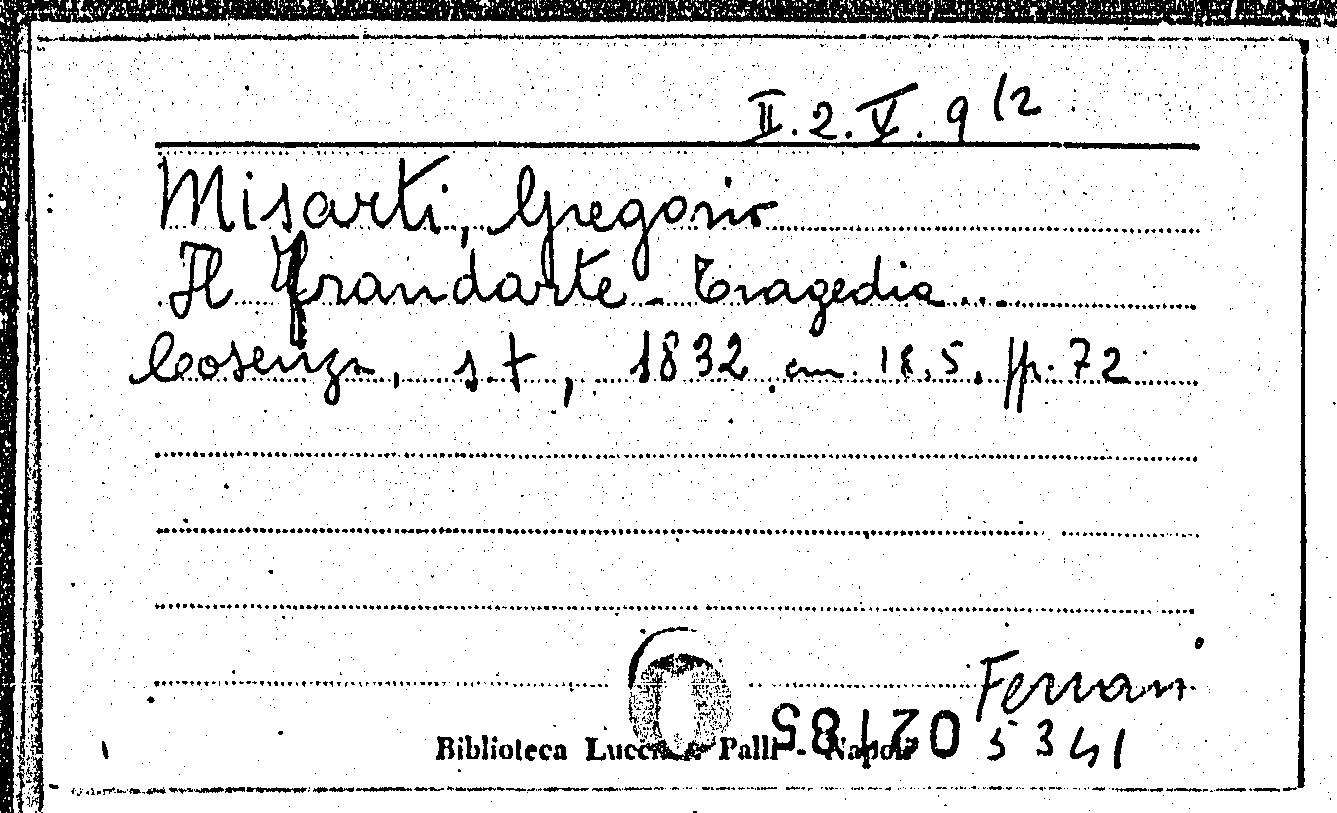 II. 2. V. 9 /2
Misarti, Gregorio
Il Trandarte - Tragedia ...
Cosenza, s.t., 1832 cm. 18,5. pp. 72
Ferrari
Biblioteca Lucchesi Palli - Napoli
021785
5341